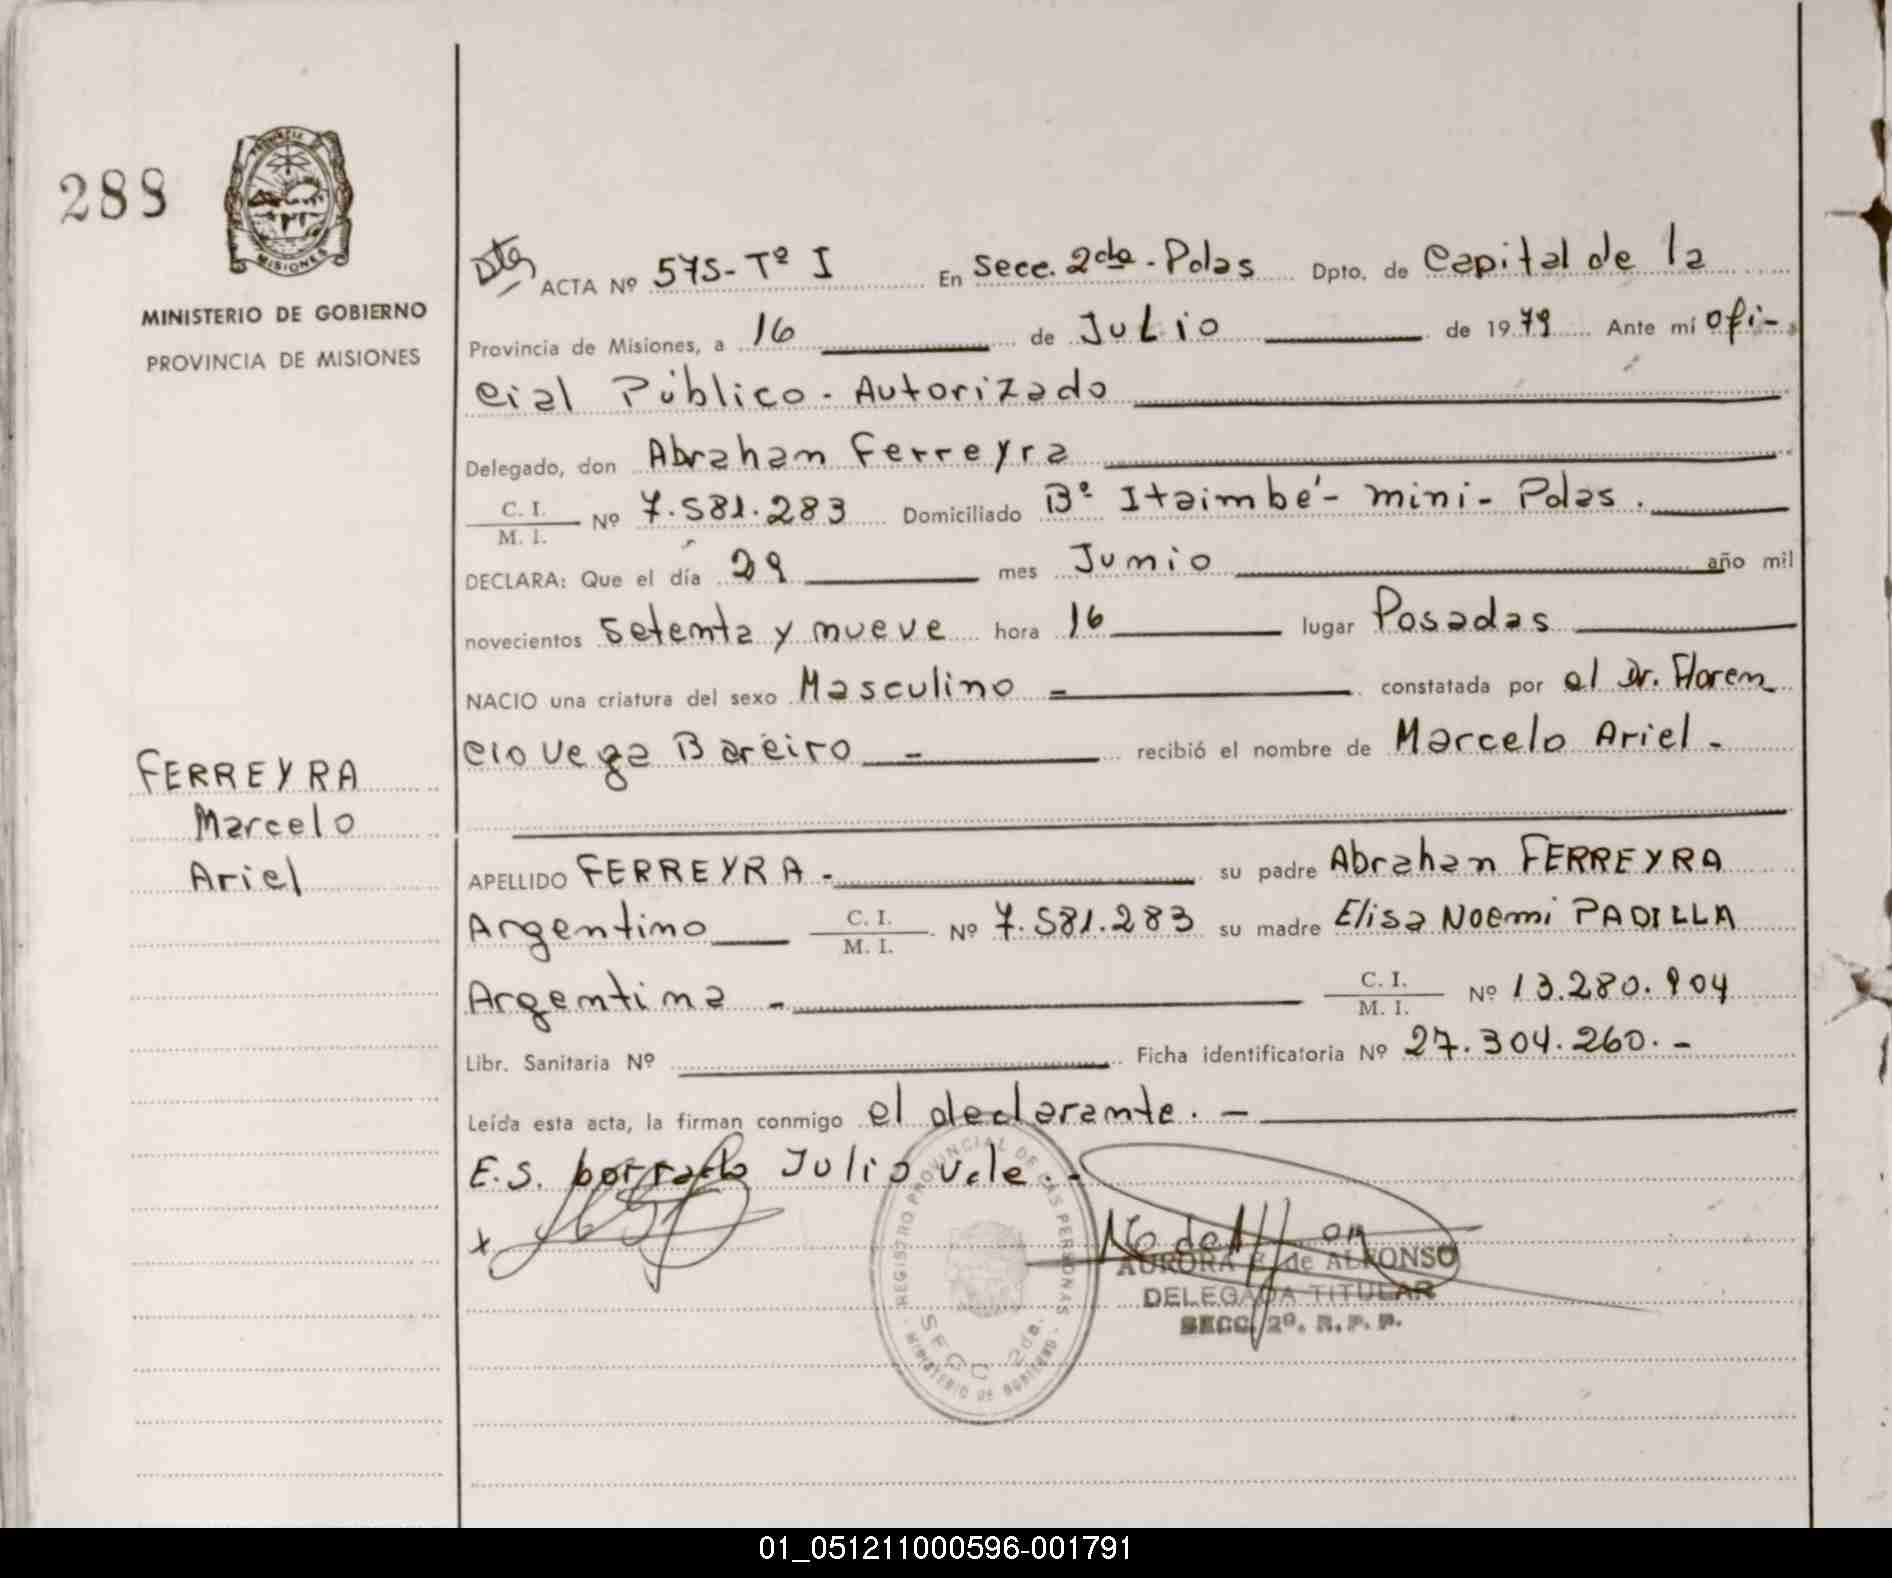 288
PROVINCIA DE
MISIONES
MINISTERIO DE GOBIERNO
PROVINCIA DE MISIONES
ACTA Nº 575-Tº I En Secc. 2da - Pdas Dpto. de Capital de la
Provincia de Misiones, a 16 de Julio de 1979 Ante mí ofi-
cial Público - Autorizado
Delegado, don Abrahan Ferreyra
C. I.
M. I. Nº 7.581.283 Domiciliado Bº Itaimbé - mini - Pdas.
DECLARA: Que el día 29 mes Junio año mil
novecientos setenta y nueve hora 16 lugar Posadas
NACIO una criatura del sexo Masculino - constatada por el Dr. Floren
cio Vega Bareiro - recibió el nombre de Marcelo Ariel -
FERREYRA
Marcelo
Ariel
APELLIDO FERREYRA - su padre Abrahan FERREYRA
Argentino C. I.
M. I. Nº 7.581.283 su madre Elisa Noemi PADILLA
Argentina - C. I.
M. I. Nº 13.280.904
Libr. Sanitaria Nº Ficha identificatoria Nº 27.304.260. -
Leída esta acta, la firman conmigo el declarante. -
E.S. borrado Julio Vale. -
x
REGISTRO PROVINCIAL DE LAS PERSONAS
SECC 2da.
MINISTERIO DE GOBIERNO
AURORA E. de ALFONSO
DELEGADA TITULAR
SECC. 2º. R. P. P.
01_051211000596-001791